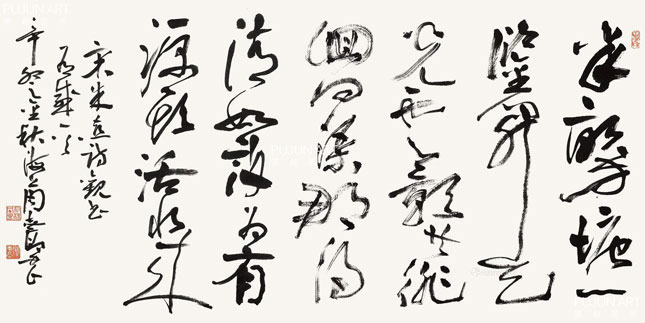 半畝方塘一
鑑開天
光雲影共徘
徊問渠那得
清如許為有
源頭活水來
宋朱熹詩觀書
有感一首